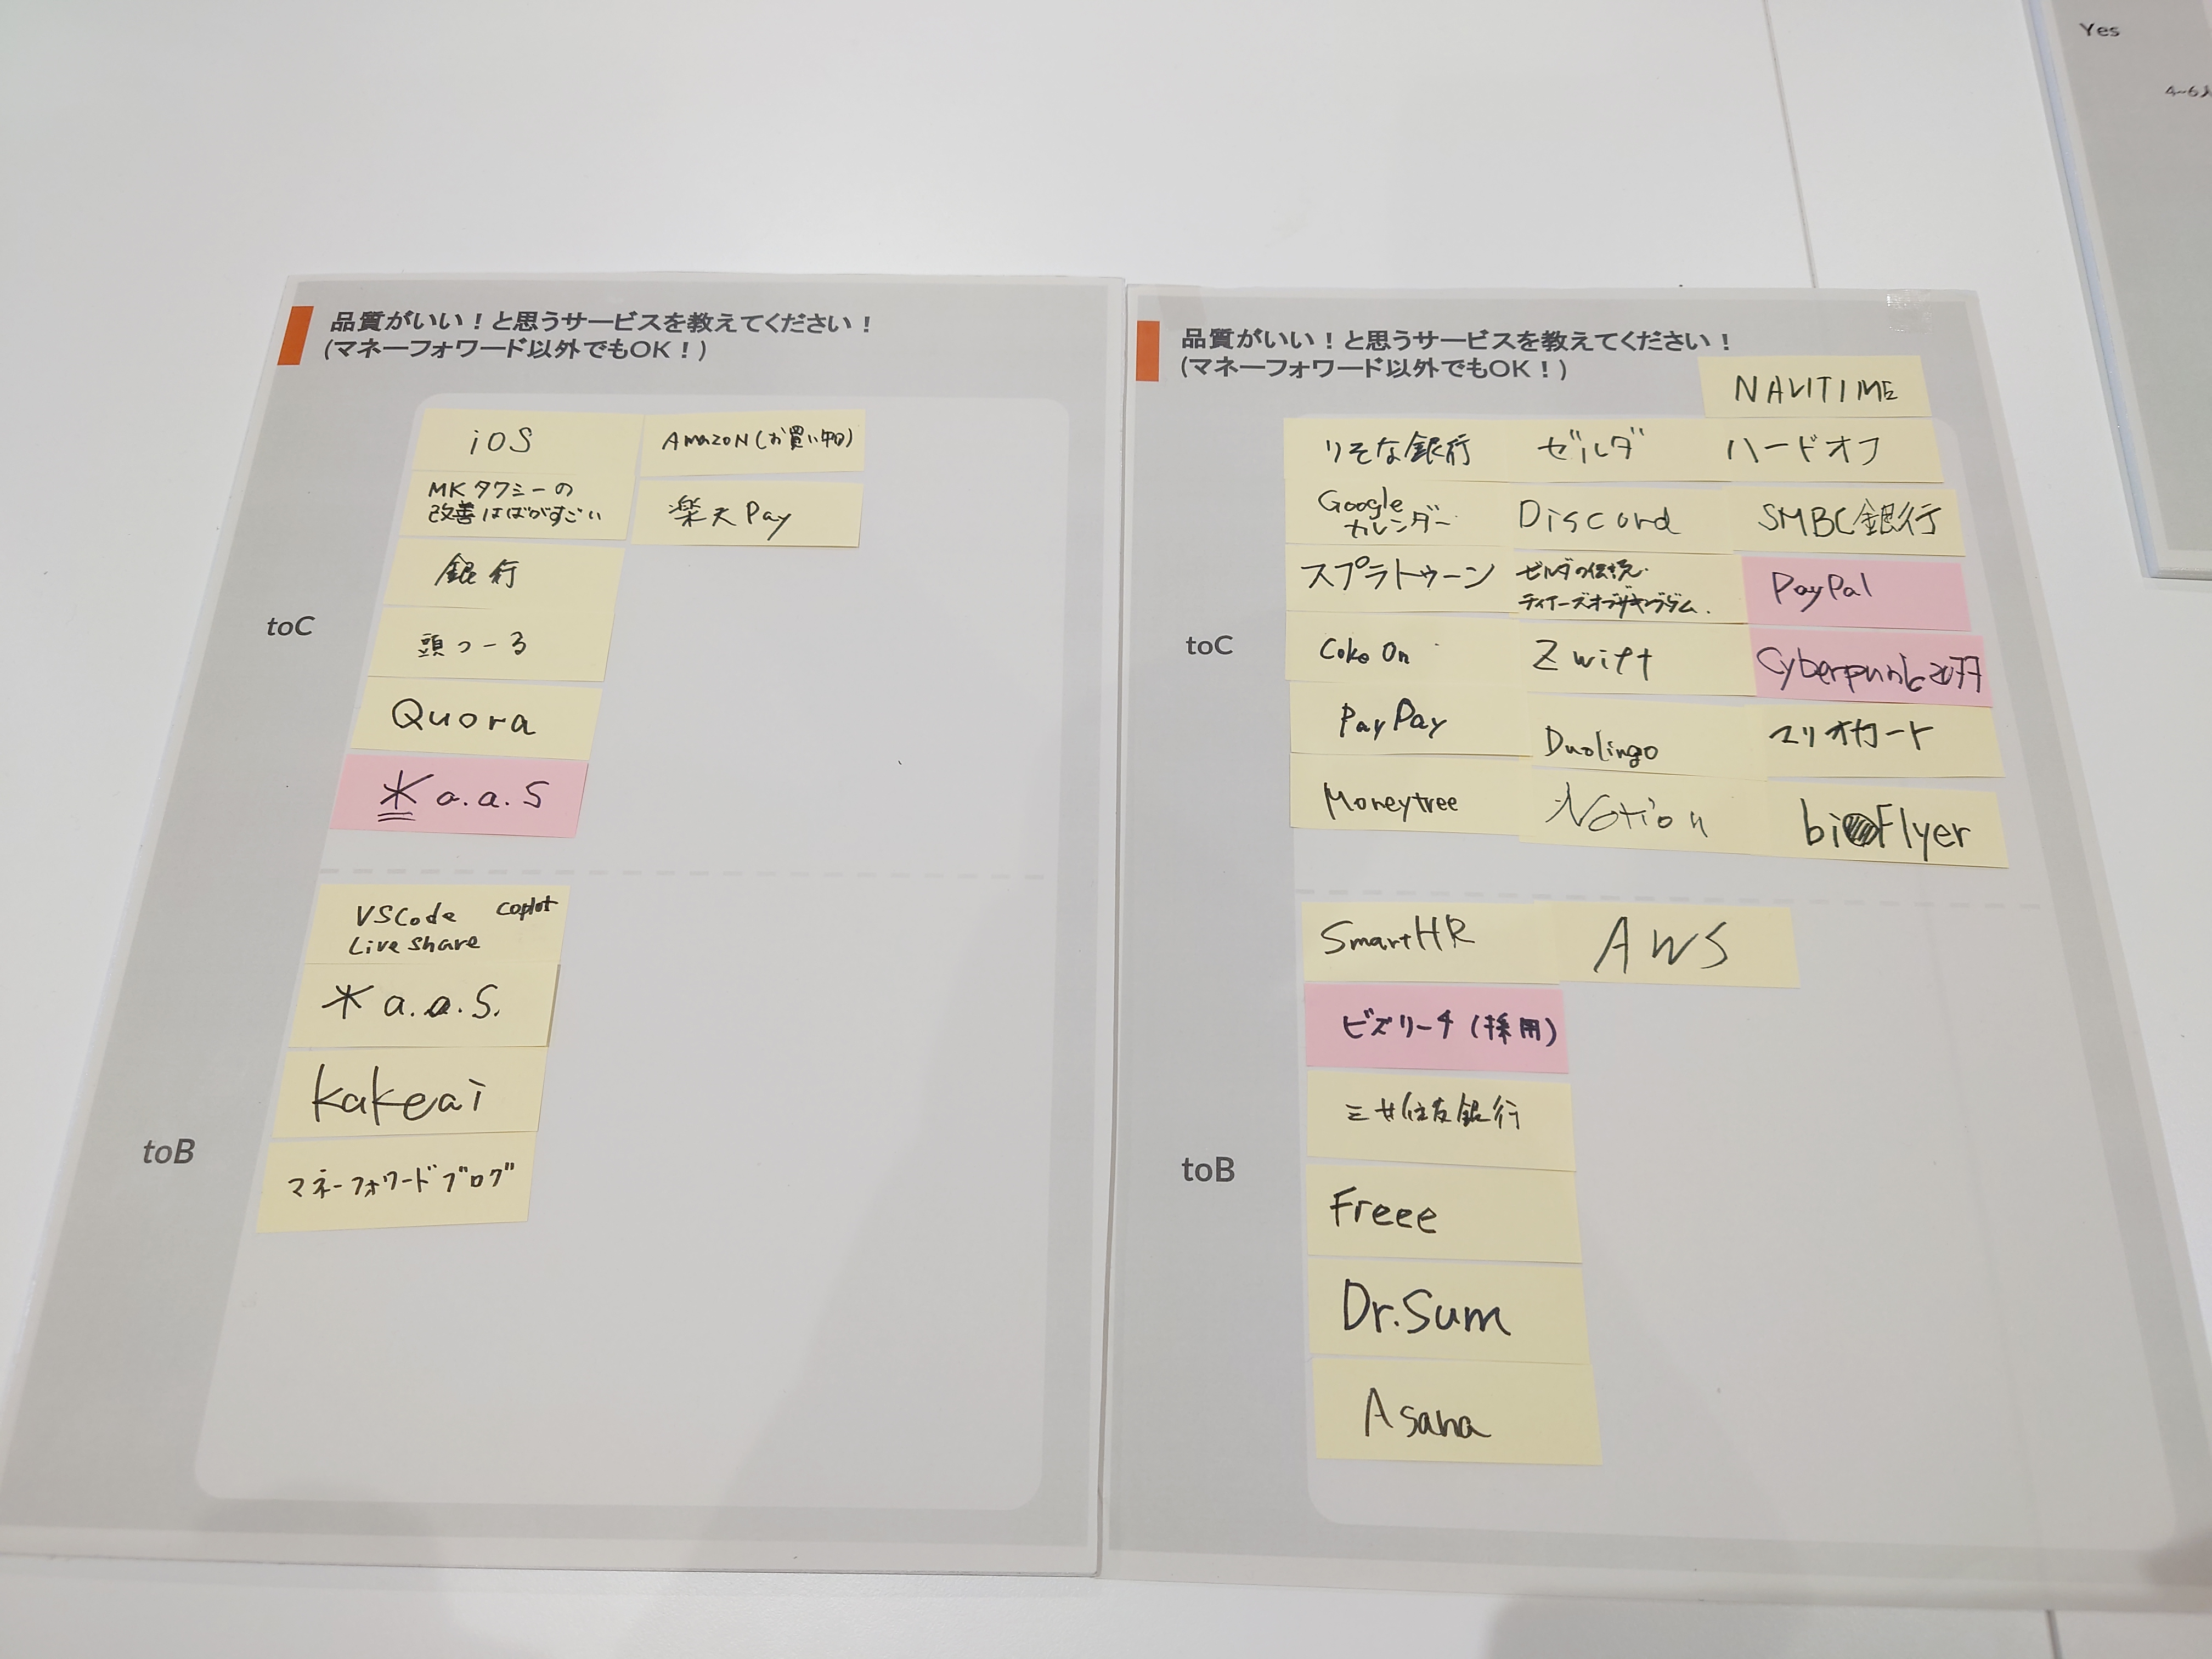 品質がいい！と思うサービスを教えてください！
(マネーフォワード以外でもOK！)
toC
iOS
MKタクシーの
改善はばがすごい
銀行
頭つーる
Quora
*a.a.S
Amazon(お買い物)
楽天Pay
toB
VSCode Coplot
Live share
*a.a.S.
kakeai
マネーフォワードブログ
品質がいい！と思うサービスを教えてください！
(マネーフォワード以外でもOK！)
NAVITIME
toC
りそな銀行
ゼルダ
ハードオフ
Google
カレンダー
Discord
SMBC銀行
スプラトゥーン
ゼルダの伝説
ティアーズオブザキングダム.
PayPal
Coke On
Zwift
Cyberpunk2077
PayPay
Duolingo
マリオカート
Moneytree
Notion
biFlyer
toB
SmartHR
AWS
ビズリーチ(採用)
三井住友銀行
Freee
Dr.Sum
Asana
Yes